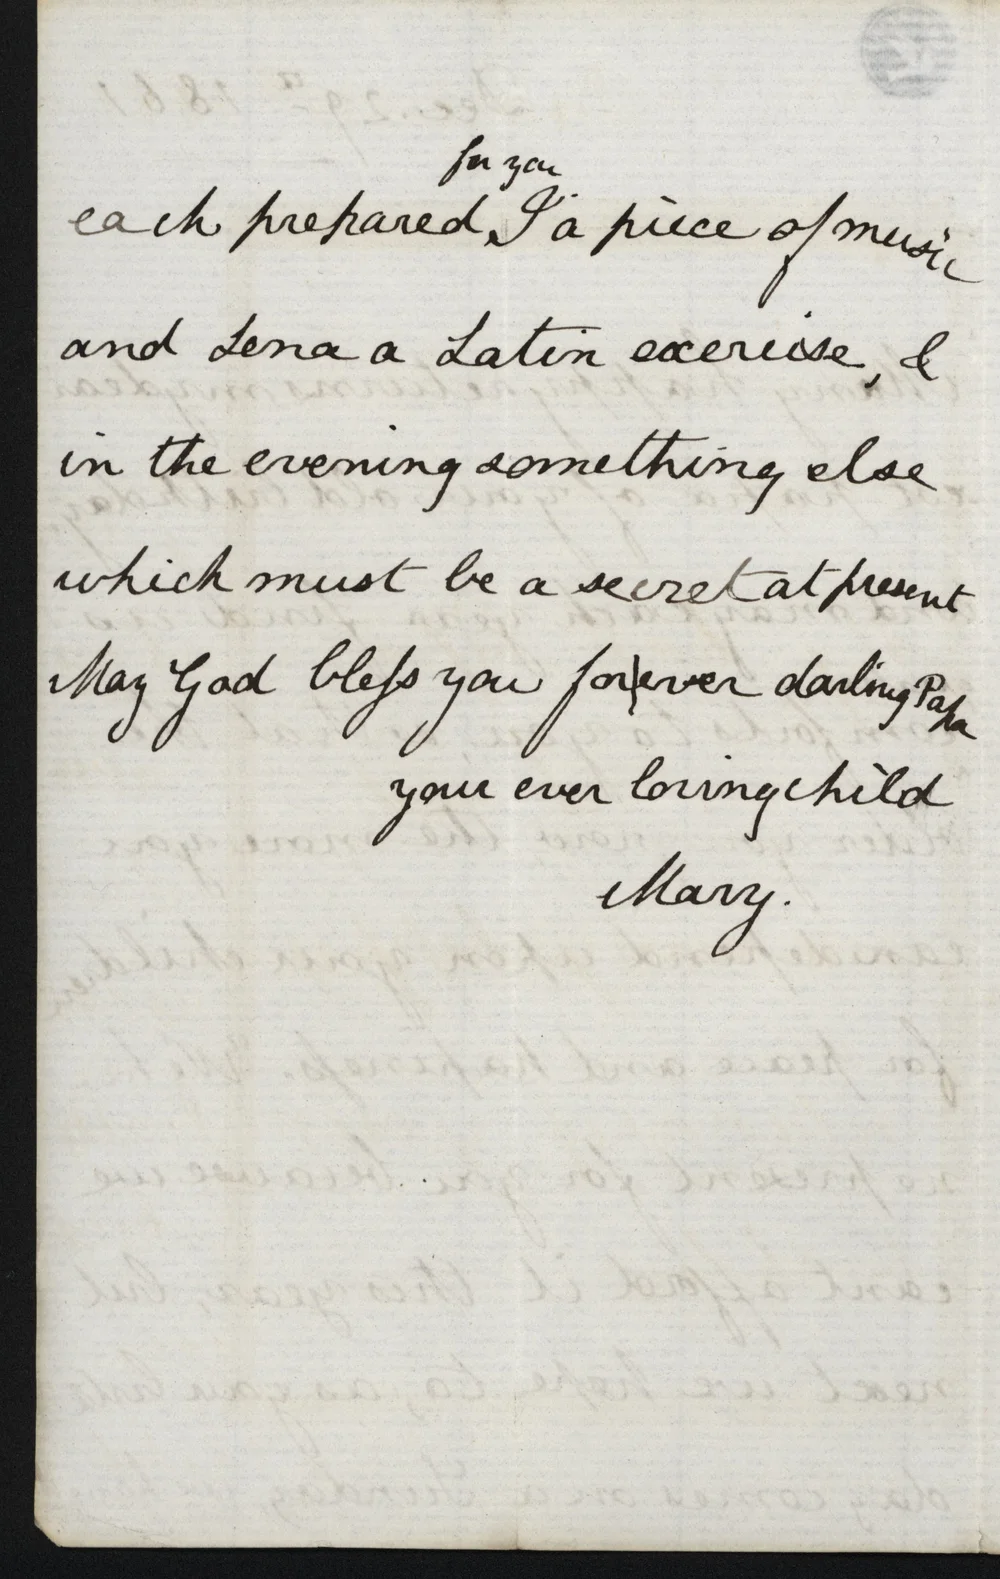 for you
each prepared, I a piece of music
and Lena a Latin exercise, &
in the evening something else
which must be a secret at present
May God bless you forever darling Papa
your ever loving child
Mary.